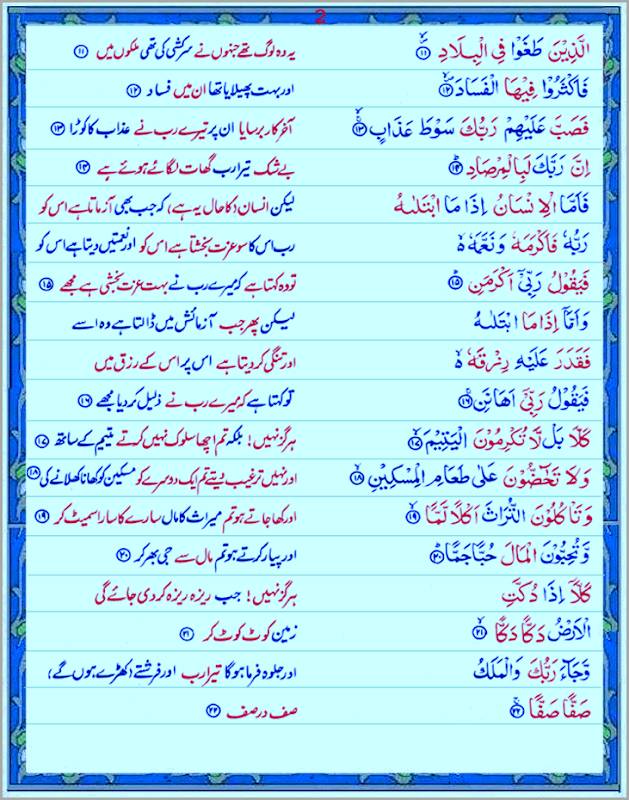 2
الَّذِیْنَ طَغَوْا فِی الْبِلَادِ ۱۱ یہ وہ لوگ تھے جنہوں نے سرکشی کی تھی ملکوں میں ۱۱
فَاَكْثَرُوْا فِیْهَا الْفَسَادَ ۱۲ اور بہت پھیلایا تھا ان میں فساد ۱۲
فَصَبَّ عَلَیْهِمْ رَبُّكَ سَوْطَ عَذَابٍ ۱۳ آخرکار برسایا ان پر تیرے رب نے عذاب کا کوڑا ۱۳
اِنَّ رَبَّكَ لَبِالْمِرْصَادِ ۱۴ بے شک تیرا رب گھات لگائے ہوئے ہے ۱۴
فَاَمَّا الْاِنْسَانُ اِذَا مَا ابْتَلٰىهُ لیکن انسان (کا حال یہ ہے) کہ جب بھی آزماتا ہے اس کو
رَبُّهٗ فَاَكْرَمَهٗ وَنَعَّمَهٗ رب اس کا سو عزت بخشتا ہے اس کو اور نعمتیں دیتا ہے اس کو
فَیَقُوْلُ رَبِّیْۤ اَكْرَمَنِ ۱۵ تو وہ کہتا ہے کہ میرے رب نے بہت عزت بخشی ہے مجھے ۱۵
وَاَمَّاۤ اِذَا مَا ابْتَلٰىهُ لیکن پھر جب آزمائش میں ڈالتا ہے وہ اسے
فَقَدَرَ عَلَیْهِ رِزْقَهٗ اور تنگی کر دیتا ہے اس پر اس کے رزق میں
فَیَقُوْلُ رَبِّیْۤ اَهَانَنِ ۱۶ تو کہتا ہے کہ میرے رب نے ذلیل کر دیا مجھے ۱۶
كَلَّا بَلْ لَّا تُكْرِمُوْنَ الْیَتِیْمَ ۱۷ ہرگز نہیں! بلکہ تم اچھا سلوک نہیں کرتے یتیم کے ساتھ ۱۷
وَلَا تَحٰٓضُّوْنَ عَلٰى طَعَامِ الْمِسْكِیْنِ ۱۸ اور نہیں ترغیب دیتے تم ایک دوسرے کو مسکین کو کھانا کھلانے کی ۱۸
وَتَاْكُلُوْنَ التُّرَاثَ اَكْلًا لَّمًّا ۱۹ اور کھا جاتے ہو تم میراث کا مال سارے کا سارا سمیٹ کر ۱۹
وَّتُحِبُّوْنَ الْمَالَ حُبًّا جَمًّا ۲۰ اور پیار کرتے ہو تم مال سے جی بھر کر ۲۰
كَلَّاۤ اِذَا دُكَّتِ ہرگز نہیں! جب ریزہ ریزہ کر دی جائے گی
الْاَرْضُ دَكًّا دَكًّا ۲۱ زمین کوٹ کوٹ کر ۲۱
وَّجَآءَ رَبُّكَ وَالْمَلَكُ اور جلوہ فرما ہوگا تیرا رب اور فرشتے (کھڑے ہوں گے)
صَفًّا صَفًّا ۲۲ صف در صف ۲۲